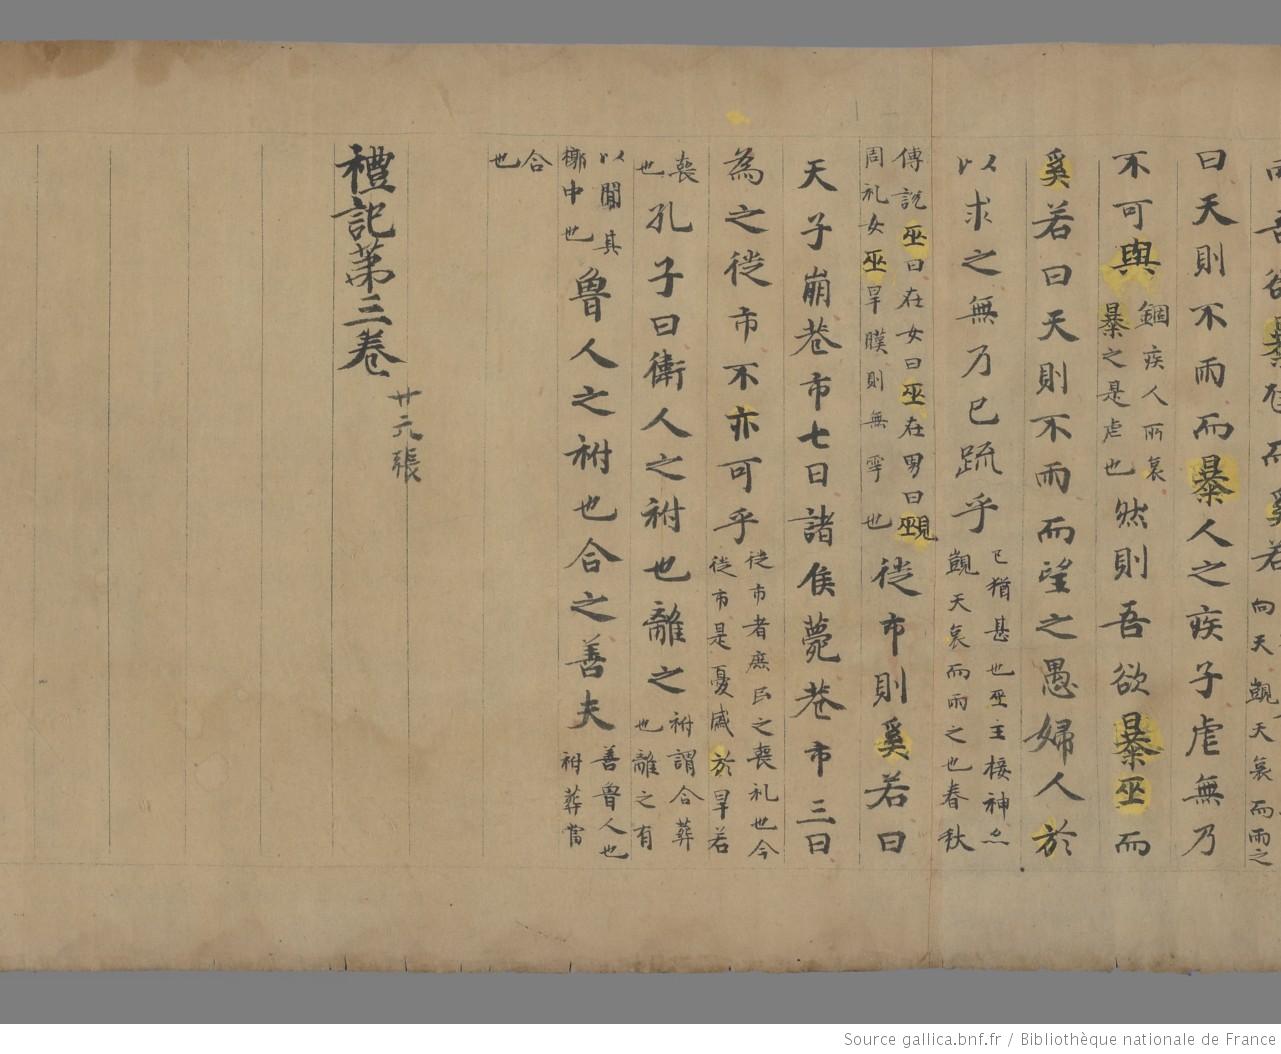 而吾欲暴尫而奚若向天覬天哀而雨之
曰天則不雨而暴人之疾子虐無乃
不可與錮疾人所哀暴之是虐也然則吾欲暴巫而
奚若曰天則不雨而望之愚婦人於
以求之無乃已疏乎已猶甚也巫主接神亦覬天哀而雨之也春秋
傳說巫曰在女曰巫在男曰覡周礼女巫旱暵則無雩也徙市則奚若曰
天子崩巷市七日諸侯薨巷市三日
為之徙市不亦可乎徙市者庶民之喪礼也今徙市是憂戚於旱若
喪也孔子曰衛人之祔也離之祔謂合葬也離之有
以閒其槨中也魯人之祔也合之善夫善魯人也祔葬當
合也
廿元張
禮記第三卷
Source gallica.bnf.fr / Bibliothèque nationale de France